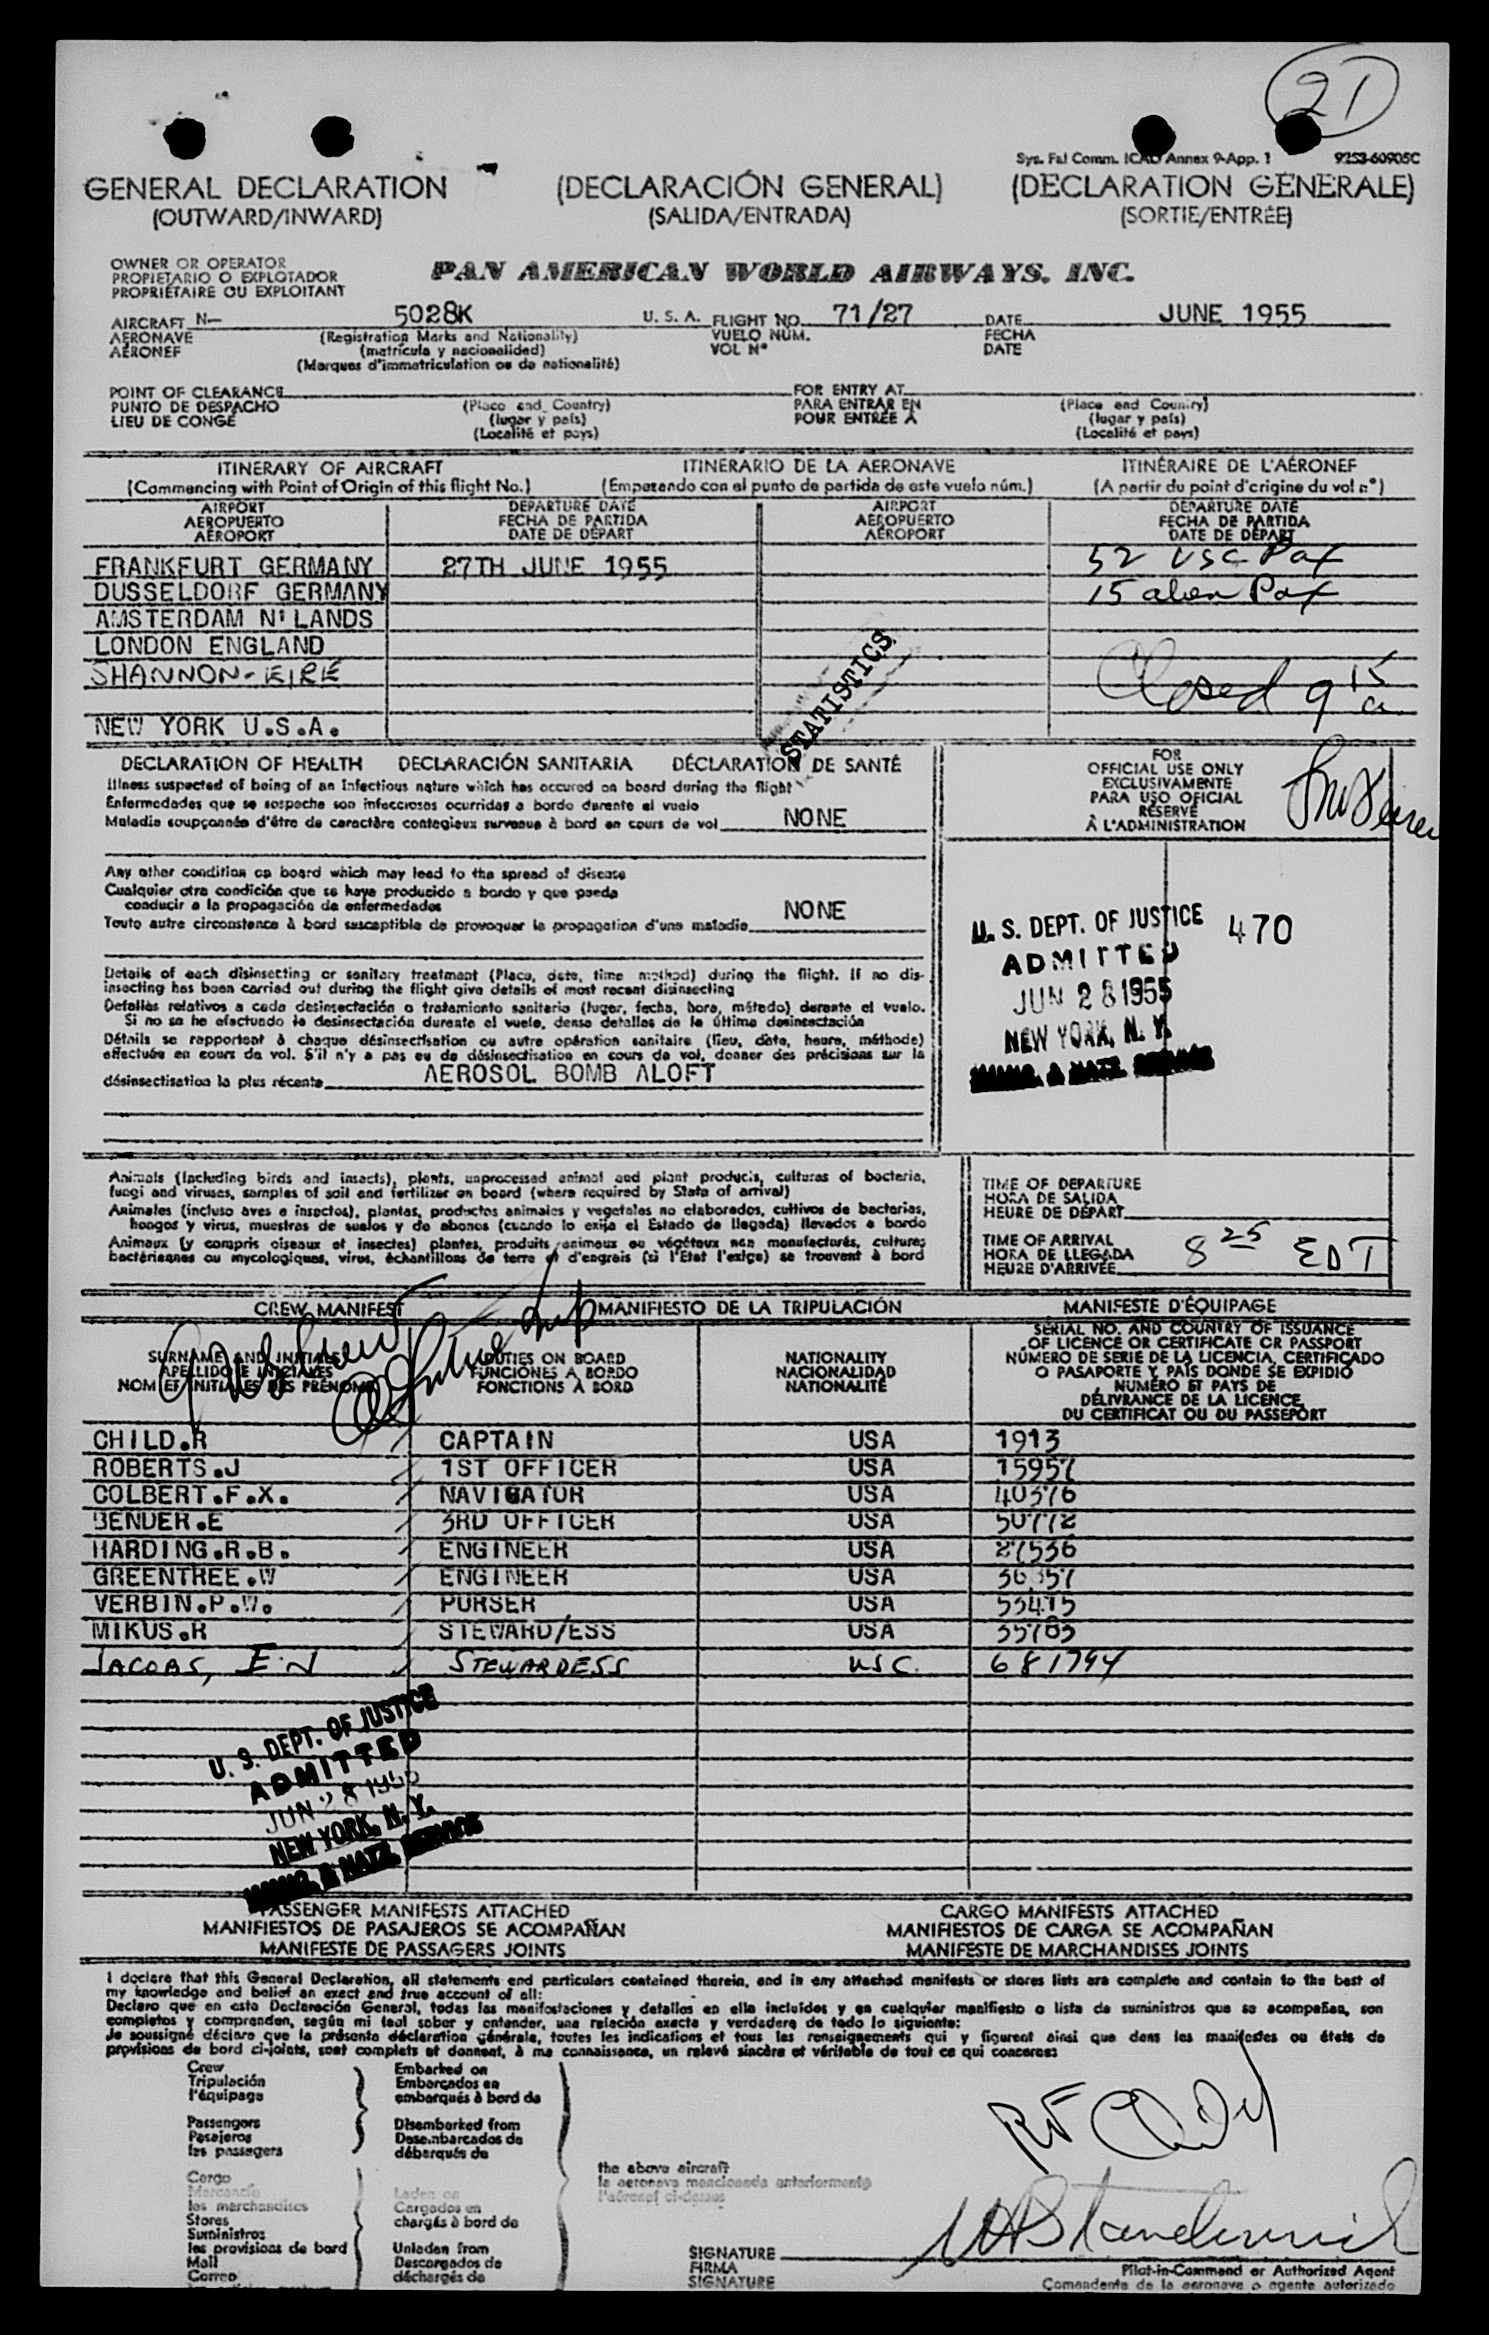 21
Sys. Fal Comm. ICAO Annex 9-App. 1 9253-60905C
GENERAL DECLARATION (DECLARACIÓN GENERAL) (DECLARATION GENERALE)
(OUTWARD/INWARD) (SALIDA/ENTRADA) (SORTIE/ENTRÉE)
OWNER OR OPERATOR
PROPIETARIO O EXPLOTADOR
PROPRIÉTAIRE OU EXPLOITANT
PAN AMERICAN WORLD AIRWAYS, INC.
AIRCRAFT N- 5028K U. S. A. FLIGHT NO. 71/27 DATE JUNE 1955
AERONAVE (Registration Marks and Nationality) VUELO NÚM. FECHA
AÉRONEF (matrícula y nacionalidad) VOL Nº DATE
(Marques d'immatriculation ou de nationalité)
POINT OF CLEARANCE FOR ENTRY AT
PUNTO DE DESPACHO (Place and Country) PARA ENTRAR EN (Place and Country)
LIEU DE CONGÉ (lugar y país) POUR ENTRÉE A (lugar y país)
(Localité et pays) (Localité et pays)
ITINERARY OF AIRCRAFT ITINERARIO DE LA AERONAVE ITINÉRAIRE DE L'AÉRONEF
(Commencing with Point of Origin of this flight No.) (Empezando con el punto de partida de este vuelo núm.) (A partir du point d'origine du vol nº)
AIRPORT DEPARTURE DATE AIRPORT DEPARTURE DATE
AEROPUERTO FECHA DE PARTIDA AEROPUERTO FECHA DE PARTIDA
AÉROPORT DATE DE DÉPART AÉROPORT DATE DE DÉPART
FRANKFURT GERMANY 27TH JUNE 1955 52 USC Pax
DUSSELDORF GERMANY 15 alien Pax
AMSTERDAM N'LANDS
LONDON ENGLAND
SHANNON-EIRE Closed 9 15 a
NEW YORK U.S.A.
STATISTICS
DECLARATION OF HEALTH DECLARACIÓN SANITARIA DÉCLARATION DE SANTÉ
Illness suspected of being of an infectious nature which has occured on board during the flight
Enfermedades que se sospeche son infecciosas ocurridas a bordo durante el vuelo
Maladie soupçonnée d'être de caractère contagieux survenue à bord en cours de vol NONE
FOR
OFFICIAL USE ONLY
EXCLUSIVAMENTE
PARA USO OFICIAL
RÉSERVÉ
À L'ADMINISTRATION
Any other condition on board which may lead to the spread of disease
Cualquier otra condición que se haya producido a bordo y que pueda
conducir a la propagación de enfermedades
Toute autre circonstance à bord susceptible de provoquer la propagation d'une maladie NONE
U. S. DEPT. OF JUSTICE 470
ADMITTED
JUN 28 1955
NEW YORK, N. Y.
IMMIG. & NATZ. SERVICE
Details of each disinsecting or sanitary treatment (Place, date, time method) during the flight. If no dis-
insecting has been carried out during the flight give details of most recent disinsecting
Detalles relativos a cada desinsectación o tratamiento sanitario (lugar, fecha, hora, método) durante el vuelo.
Si no se ha efectuado la desinsectación durante el vuelo, dense detalles de la última desinsectación
Détails se rapportant à chaque désinsectisation ou autre opération sanitaire (lieu, date, heure, méthode)
effectuée en cours de vol. S'il n'y a pas eu de désinsectisation en cours de vol, donner des précisions sur la
désinsectisation la plus récente AEROSOL BOMB ALOFT
Animals (including birds and insects), plants, unprocessed animal and plant products, cultures of bacteria,
fungi and viruses, samples of soil and fertilizer on board (where required by State of arrival)
Animales (incluso aves e insectos), plantas, productos animales y vegetales no elaborados, cultivos de bacterias,
hongos y virus, muestras de suelos y de abonos (cuando lo exija el Estado de llegada) llevados a bordo
Animaux (y compris oiseaux et insectes) plantes, produits animaux ou végétaux non manufacturés, cultures
bactériennes ou mycologiques, virus, échantillons de terre et d'engrais (si l'État l'exige) se trouvant à bord
TIME OF DEPARTURE
HORA DE SALIDA
HEURE DE DÉPART
TIME OF ARRIVAL
HORA DE LLEGADA 8 25 EDT
HEURE D'ARRIVÉE
CREW MANIFEST MANIFIESTO DE LA TRIPULACIÓN MANIFESTE D'ÉQUIPAGE
SURNAME AND INITIALS
APELLIDO E INICIALES
NOM ET INITIALES DES PRÉNOMS
DUTIES ON BOARD
FUNCIONES A BORDO
FONCTIONS À BORD
NATIONALITY
NACIONALIDAD
NATIONALITÉ
SERIAL NO. AND COUNTRY OF ISSUANCE
OF LICENCE OR CERTIFICATE OR PASSPORT
NÚMERO DE SERIE DE LA LICENCIA, CERTIFICADO
O PASAPORTE Y PAÍS DONDE SE EXPIDIÓ
NUMÉRO ET PAYS DE
DÉLIVRANCE DE LA LICENCE,
DU CERTIFICAT OU DU PASSEPORT
CHILD.R CAPTAIN USA 1913
ROBERTS.J 1ST OFFICER USA 15957
COLBERT.F.X. NAVIGATOR USA 40376
BENDER.E 3RD OFFICER USA 50772
HARDING.R.B. ENGINEER USA 27536
GREENTREE.W ENGINEER USA
VERBIN.P.W. PURSER USA 53415
MIKUS.R STEWARD/ESS USA 35703
JACOBS, E.N STEWARDESS USC. 681794
U. S. DEPT. OF JUSTICE
ADMITTED
JUN 28 1955
NEW YORK, N. Y.
IMMIG. & NATZ. SERVICE
PASSENGER MANIFESTS ATTACHED CARGO MANIFESTS ATTACHED
MANIFIESTOS DE PASAJEROS SE ACOMPAÑAN MANIFIESTOS DE CARGA SE ACOMPAÑAN
MANIFESTE DE PASSAGERS JOINTS MANIFESTE DE MARCHANDISES JOINTS
I declare that this General Declaration, all statements and particulars contained therein, and in any attached manifests or stores lists are complete and contain to the best of
my knowledge and belief an exact and true account of all:
Declaro que en esta Declaración General, todas las manifestaciones y detalles en ella incluidos y en cualquier manifiesto o lista de suministros que se acompañan, son
completos y comprenden, según mi leal saber y entender, una relación exacta y verdadera de todo lo siguiente:
Je soussigné déclare que la présente déclaration générale, toutes les indications et tous les renseignements qui y figurent ainsi que dans les manifestes ou états de
provisions de bord ci-joints, sont complets et donnent, à ma connaissance, un relevé sincère et véritable de tout ce qui concerne:
Crew Embarked on
Tripulación Embarcados en
l'équipage embarqués à bord de
Passengers Disembarked from
Pasajeros Desembarcados de
les passagers débarqués de
the above aircraft
la aeronave mencionada anteriormente
l'aéronef ci-dessus
Cargo
Mercancía Laden on
les marchandises Cargados en
Stores chargés à bord de
Suministros
les provisions de bord Unladen from
Mail Descargados de
Correo déchargés de
SIGNATURE
FIRMA
SIGNATURE
Pilot-in-Command or Authorized Agent
Comandante de la aeronave o agente autorizado